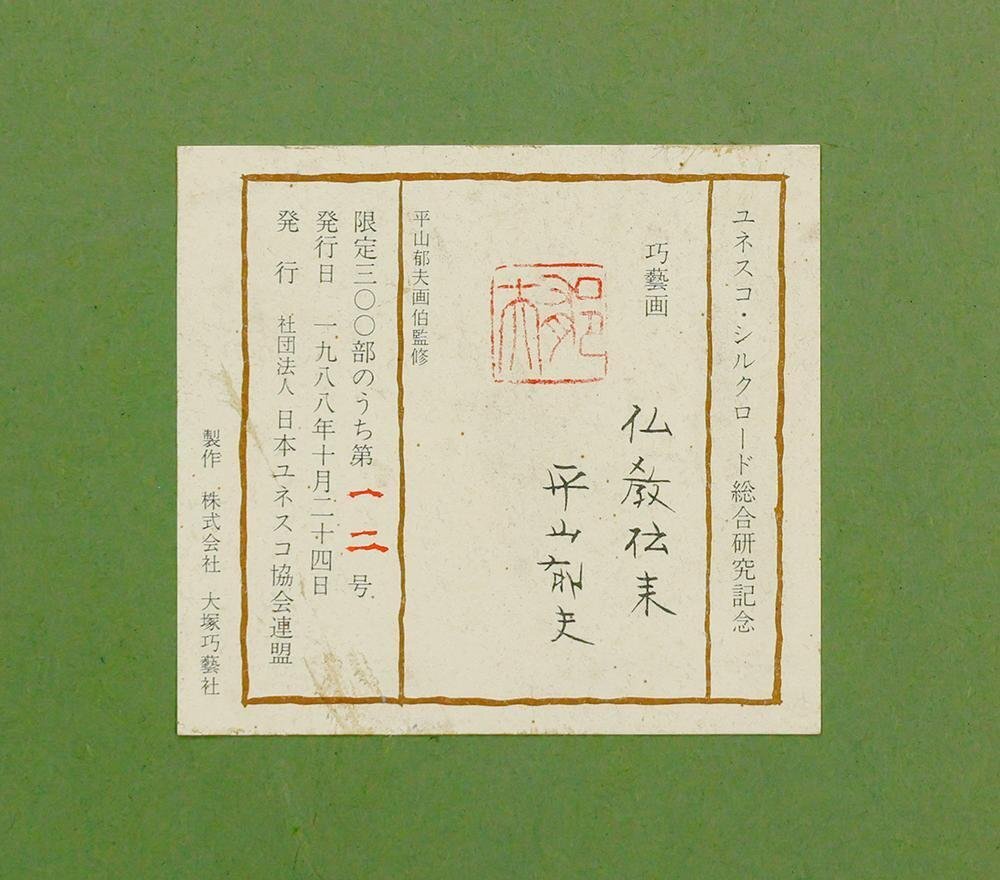 ユネスコ・シルクロード総合研究記念
巧藝画
仏教伝来
平山郁夫
郁夫
平山郁夫画伯監修
限定三〇〇部のうち第一二号
発行日 一九八八年十月二十四日
発行 社団法人 日本ユネスコ協会連盟
製作 株式会社 大塚巧藝社